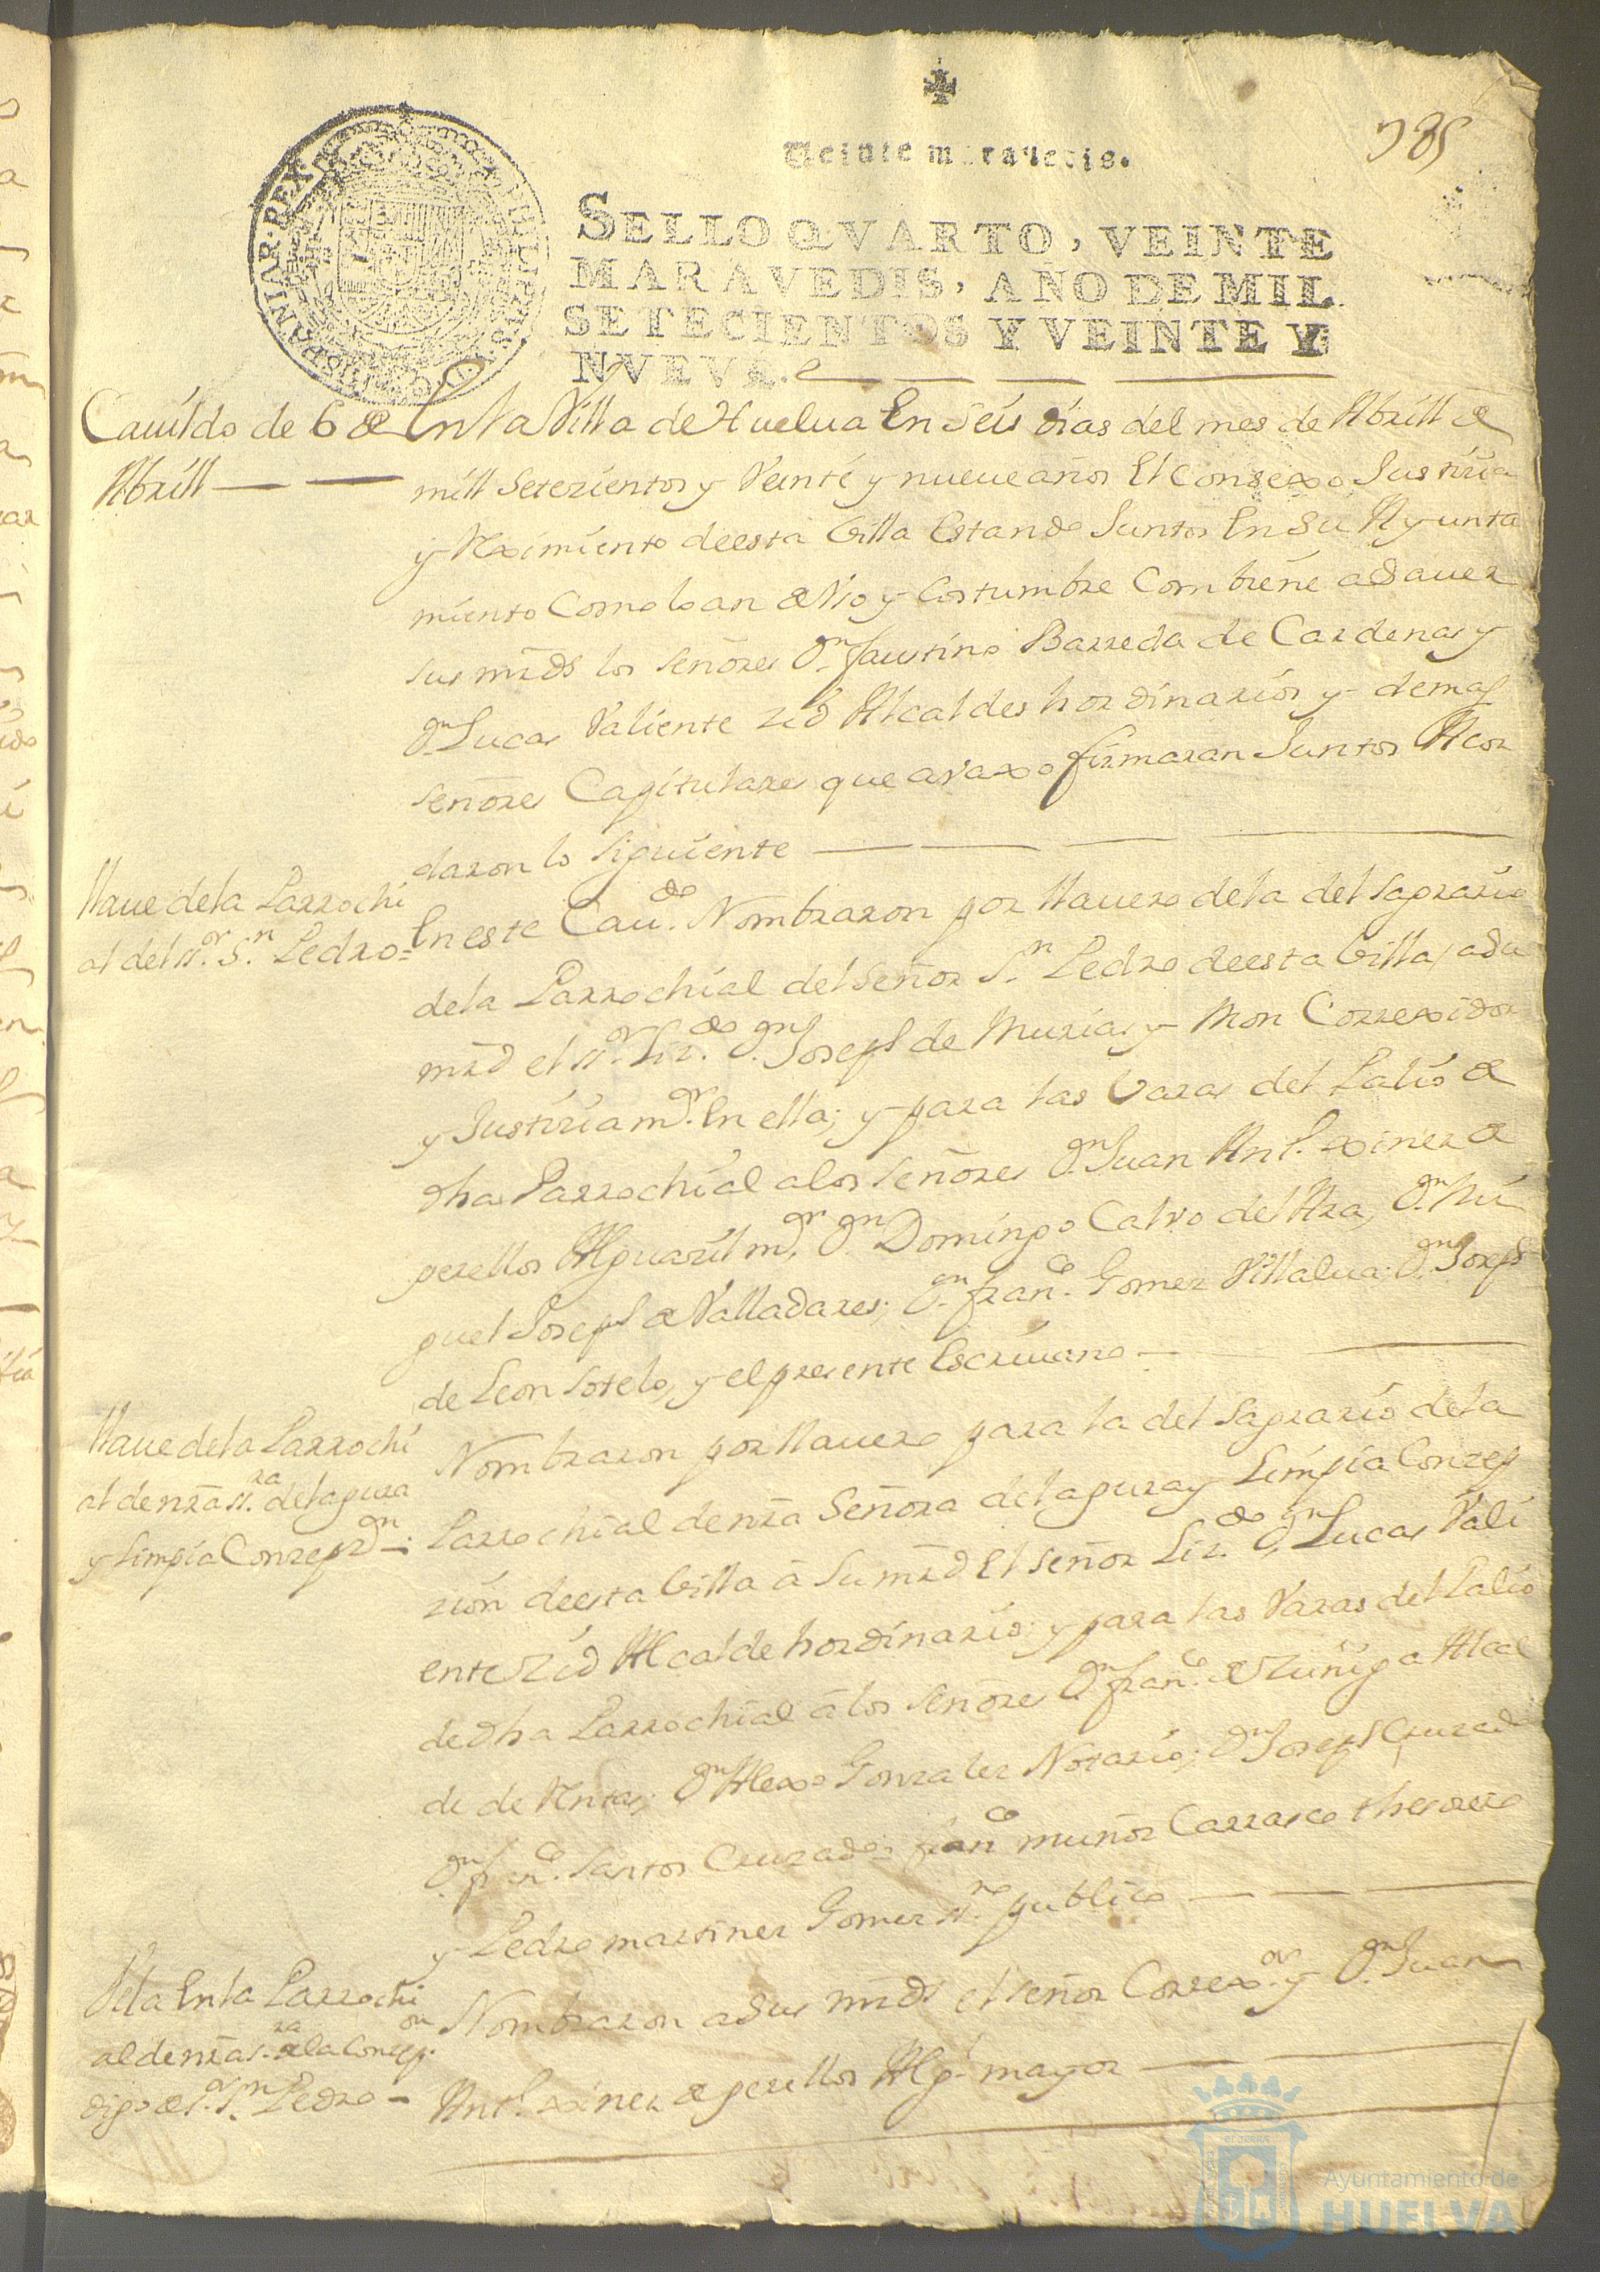 735
Veinte maravedis.
SELLO QVARTO, VEINTE
MARAVEDIS, AÑO DE MIL
SETECIENTOS Y VEINTE Y
NVEVE.
HISPANIAR·REX
Cauildo de 6 de
Abrill
En la Villa de Huelua En seis dias del mes de Abrill de
mill setezientos y Veinte y nueue años El Consexo Justizia
y Reximiento de esta Villa Estando Juntos En su Ayunta
miento Como lo an de Vso y Costumbre Combiene a Sauer
sus mrds los señores Dn. Faustino Barreda de Cardenas y
Dn. Lucas Valiente zid Alcaldes hordinarios y demas
señores Capitulares que avaxo firmaran Juntos Acor
daron lo siguiente
llaue de la Parrochi
al del sr. Sn. Pedro=
En este Caudo. Nombraron por llauero de la del sagrario
de la Parrochial del señor Sn. Pedro de esta Villa, a su
mrd el sr. Lizdo. Dn. Joseph de Murias y Mon Correxidor
y Justizia mor. En ella; y para las Varas del Palio de
dha Parrochial a los señores Dn. Juan Ant. xinez de
perellos Alguazil mor. Dn. Domingo Calvo del Ara, Dn. Mi
guel Joseph de Valladares; Dn. franco. Gomez Villalua; Dn. Joseph
de Leon sotelo, y el presente Escriuano
llaue de la Parrochi
al de nra sra. de la pura
y limpia Conzepon
Nombraron por llauero para la del sagrario de la
Parrochial de nra Señora de la pura y Limpia Conzep
zion de esta Villa â Su mrd El señor Lizdo. Dn. Lucas Vali
ente Zid Alcalde hordinario; y para las Varas del Palio
de dha Parrochial â los señores Dn. franco. de Zuñiga Alcal
de de Rentas; Dn. Alexo Gonzalez Notario; Dn. Joseph Quzado
Dn. franco. santos Cruzado; franco muñoz Carrasco thesorero
y Pedro martinez Gomez sno. publico
Ila En la Parrochi
al de nra sra. de la Conzepon.
digo de sr. Sn. Pedro
Nombraron a Sus mrds el señor Correxor. y Dn. Juan
Ant. xinez de perellos Alg. mayor
Ayuntamiento de
HUELVA